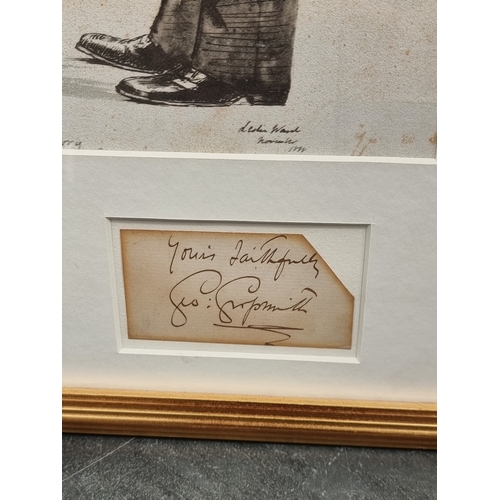 Leslie Ward
November
Yours faithfully
Geo: Grossmith